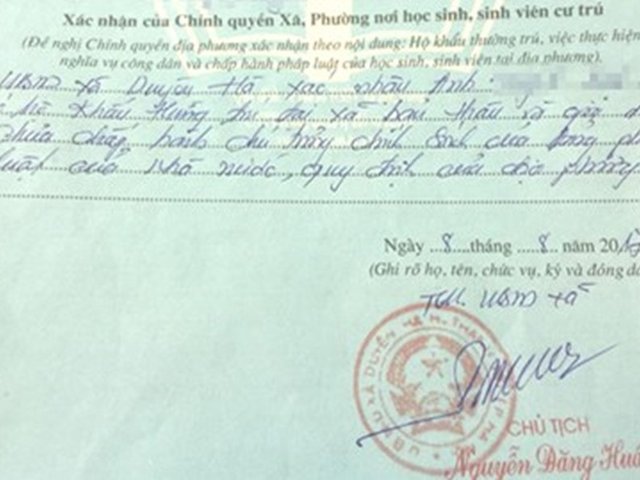 Xác nhận của Chính quyền Xá, Phường nơi học sinh, sinh viên cư trú
(Đề nghị Chính quyền địa phương xác nhận theo nội dung: Hộ khẩu thường trú, việc thực hiện
nghĩa vụ công dân và chấp hành pháp luật của học sinh, sinh viên tại địa phương).
UBND xã Duyên Hà xác nhận Anh:
khẩu thường trú tại xã bản thân và gia
chưa chấp hành chủ trương chính sách của
luật của nhà nước, quy định của địa phương
Ngày 8 tháng 8 năm 20
(Ghi rõ họ, tên, chức vụ, ký và đóng dấ
TM. UBND xã
UBND XÃ DUYÊN HÀ H. THANH
CHỦ TỊCH
Nguyễn Đăng Huấ